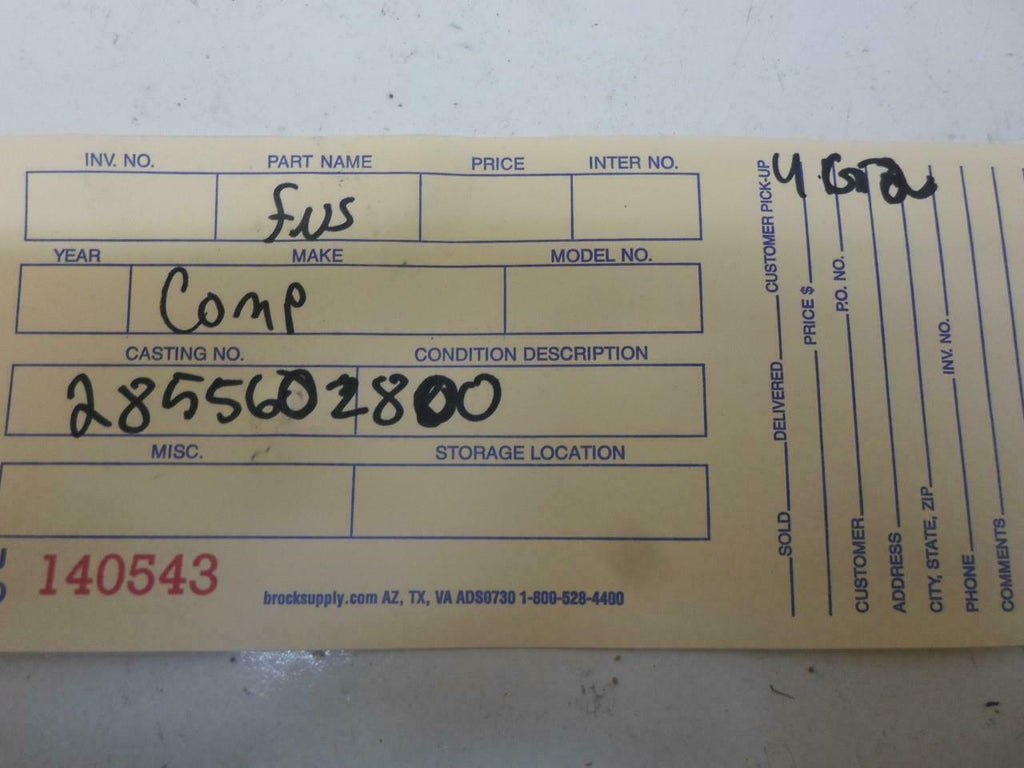 INV. NO. PART NAME PRICE INTER NO.
fus
YEAR MAKE MODEL NO.
Comp
CASTING NO. CONDITION DESCRIPTION
2855602800
MISC. STORAGE LOCATION
140543
brocksupply.com AZ, TX, VA ADS0730 1-800-528-4400
SOLD DELIVERED CUSTOMER PICK-UP
PRICE $
P.O. NO.
CUSTOMER
ADDRESS
CITY, STATE, ZIP INV. NO.
PHONE
COMMENTS